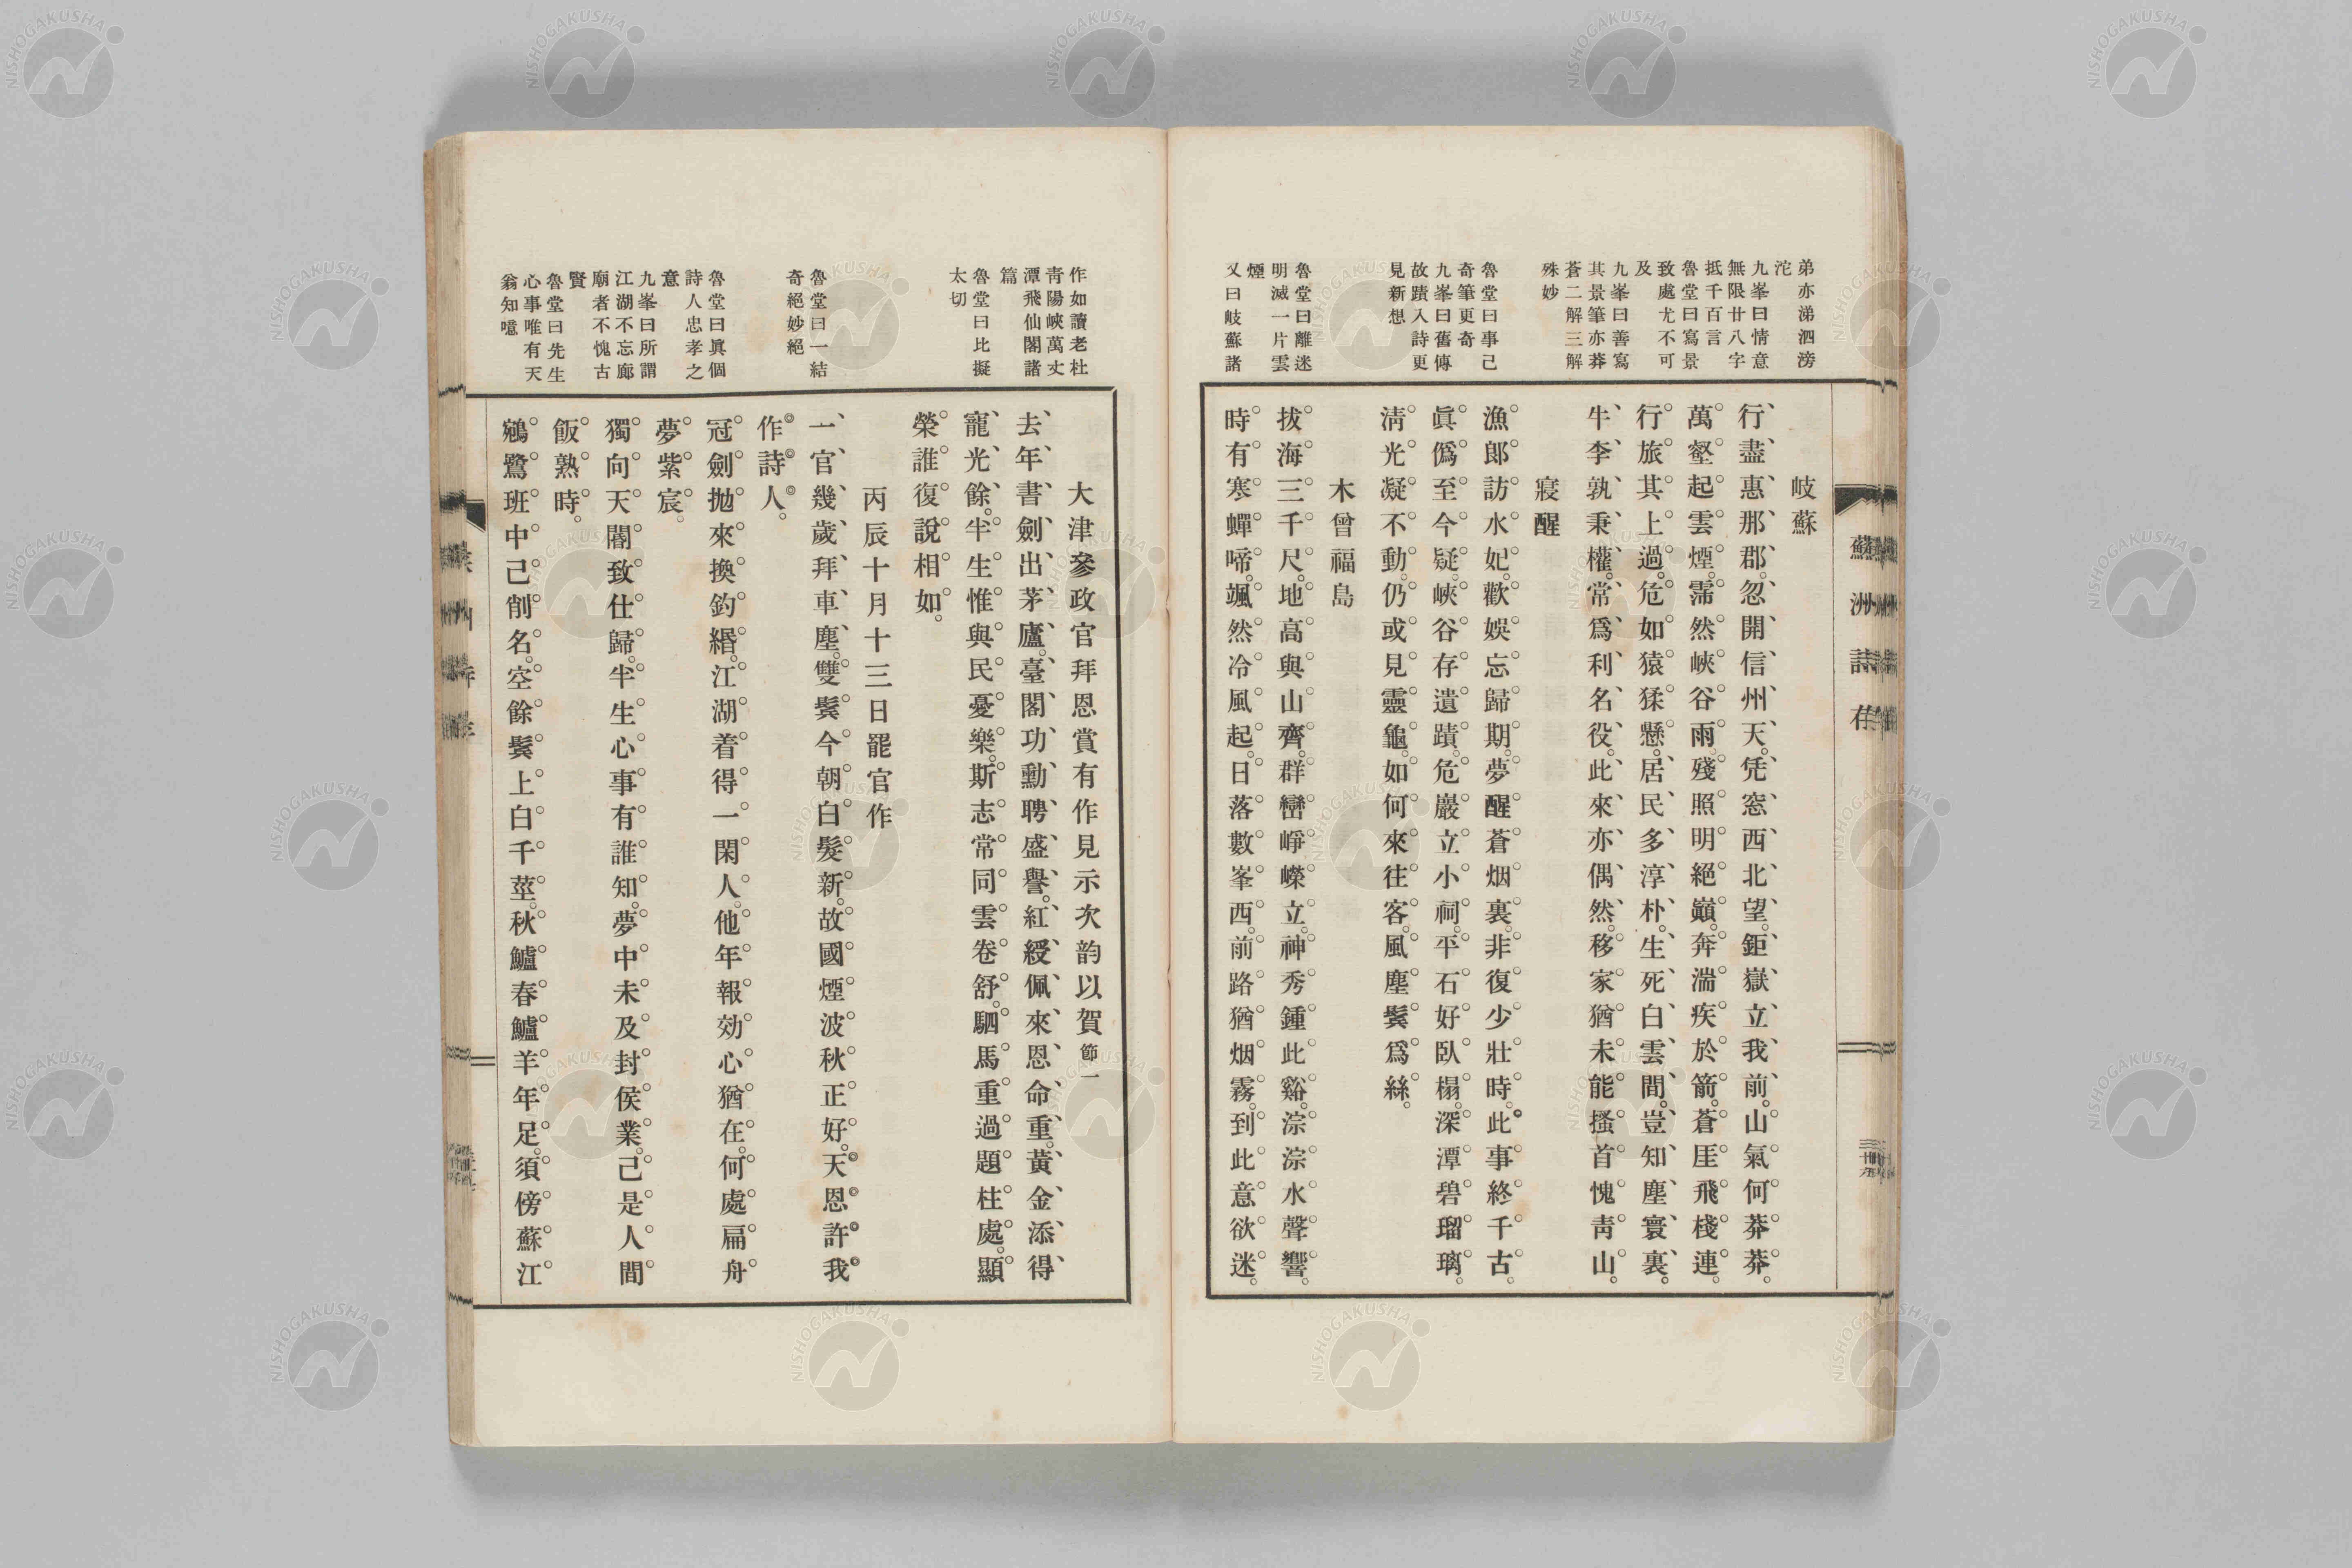 弟亦涕泗滂
沱
九峯曰情意
無限廿八字
抵千百言
魯堂曰寫景
致處尤不可
及
九峯曰善寫
其景筆亦莽
蒼二解三解
殊妙
魯堂曰事已
奇筆更奇
九峯曰舊傳
故蹟入詩更
見新想
魯堂曰離迷
明滅一片雲
煙
又曰岐蘇諸
蘇洲詩存
岐蘇
行盡惠那郡。忽開信州天。凭窓西北望。鉅嶽立我前。山氣何莽莽。
萬壑起雲煙。霈然峽谷雨。殘照明絕巓。奔湍疾於箭。蒼厓飛棧連。
行旅其上過。危如猿猱懸。居民多淳朴。生死白雲間。豈知塵寰裏。
牛李孰秉權。常爲利名役。此來亦偶然。移家猶未能。搔首愧靑山。
寢醒
漁郞訪水妃。歡娛忘歸期。夢醒蒼烟裏。非復少壯時。此事終千古。
眞僞至今疑。峽谷存遺蹟。危巖立小祠。平石好臥榻。深潭碧瑠璃。
淸光凝不動。仍或見靈龜。如何來往客。風塵鬂爲絲。
木曾福島
拔海三千尺。地高與山齊。群巒崢嶸立。神秀鍾此谿。淙淙水聲響。
時有寒蟬啼。颯然冷風起。日落數峯西。前路猶烟霧。到此意欲迷。
作如讀老杜
靑陽峽萬丈
潭飛仙閣諸
篇
魯堂曰比擬
太切
魯堂曰一結
奇絕妙絕
魯堂曰眞個
詩人忠孝之
意
九峯曰所謂
江湖不忘廊
廟者不愧古
賢
魯堂曰先生
心事唯有天
翁知噫
大津參政官拜恩賞有作見示次韵以賀節一
去年書劍出茅廬。臺閣功勳聘盛譽。紅綬佩來恩命重。黃金添得
寵光餘。半生惟與民憂樂。斯志常同雲卷舒。駟馬重過題柱處。顯
榮誰復說相如。
丙辰十月十三日罷官作
一官幾歲拜車塵。雙鬂今朝白髮新。故國煙波秋正好。天恩許我
作詩人。
冠劍拋來換釣緡。江湖着得一閑人。他年報効心猶在。何處扁舟
夢紫宸。
獨向天閽致仕歸。半生心事有誰知。夢中未及封侯業。己是人間
飯熟時。
鵷鷺班中己削名。空餘鬂上白千莖。秋鱸春鱸羊年足。須傍蘇江